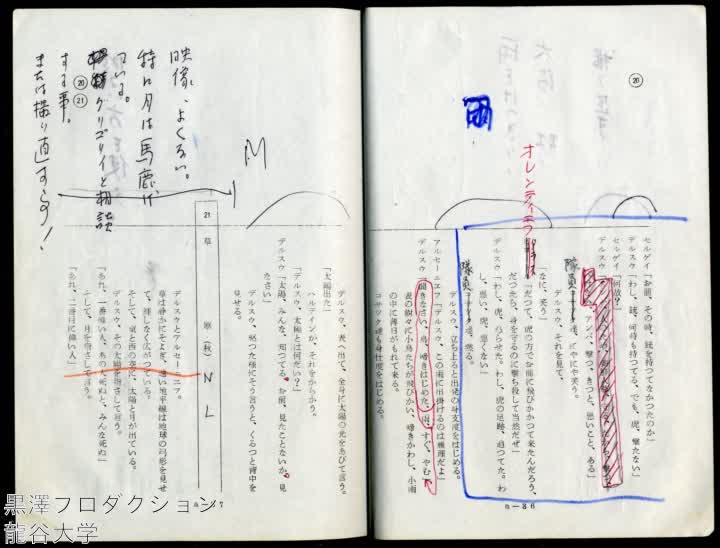 ⑳
オレンティエフ
セルゲイ「お前、その時、銃を持つてなかつたのか」
デルスウ「わし、銃、何時も持つてる、でも、虎、撃たない」
セルゲイ「何故?」
アンバ、撃つ、きつと、悪いこと、ある」
隊員達、にやにや笑う。
デルスウ、それを見て、
「なに、笑う」
「だつて、虎の方でお前に飛びかかつて来たんだろう、
だつたら、身を守るのに撃ち殺して当然だぜ」
デルスウ「わし、虎、怒らせた、わし、虎の足跡、追つてた。わ
し、悪い、虎、悪くない」
隊員達、黙る。
デルスウ、立ち上ると出発の身支度をはじめる。
アルセーニエフ「デルスウ、この雨に出掛けるのは無理だよ」
デルスウ「聞きなさい、鳥、啼きはじめた、雨、すぐ、やむ」
表の樹々に小鳥たちが飛びかい、啼きかわし、小雨
の中に薄日がもれて来る。
コサック達も身仕度をはじめる。
n-86
デルスウ、表へ出て、全身に太陽の光をあびて言う。
「太陽出た」
ハルデインが、それをからかう。
「デルスウ、太陽とは何だい?」
デルスウ「太陽、みんな、知つてる。お前、見たことないか。見
なさい」
デルスウ、怒つた様にそう言うと、くるつと背中を
見せる。
21
草
原(秋)
N L
デルスウとアルセーニエフ。
草は静かにそよぎ、遠い地平線は地球の弓形を見せ
て、涯しなく広がつている。
そして、東と西の空に、太陽と月が出ている。
デルスウ、その太陽を指さして言う。
「あれ、一番偉い人、あの人死ぬと、みんな死ぬ」
そして、月を指さして言う。
「あれ、二番目に偉い人」
映像、よくない。
特に月は馬鹿げ
ている。
⑳
㉑
グリゴリイと相談
する事。
または撮り直すらず!
黒澤プロダクション
龍谷大学